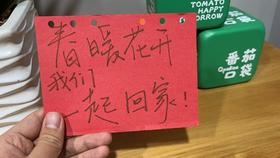 春暖花开
我们
一起回家!
TOMATO
HAPPY
TOMORROW
番茄